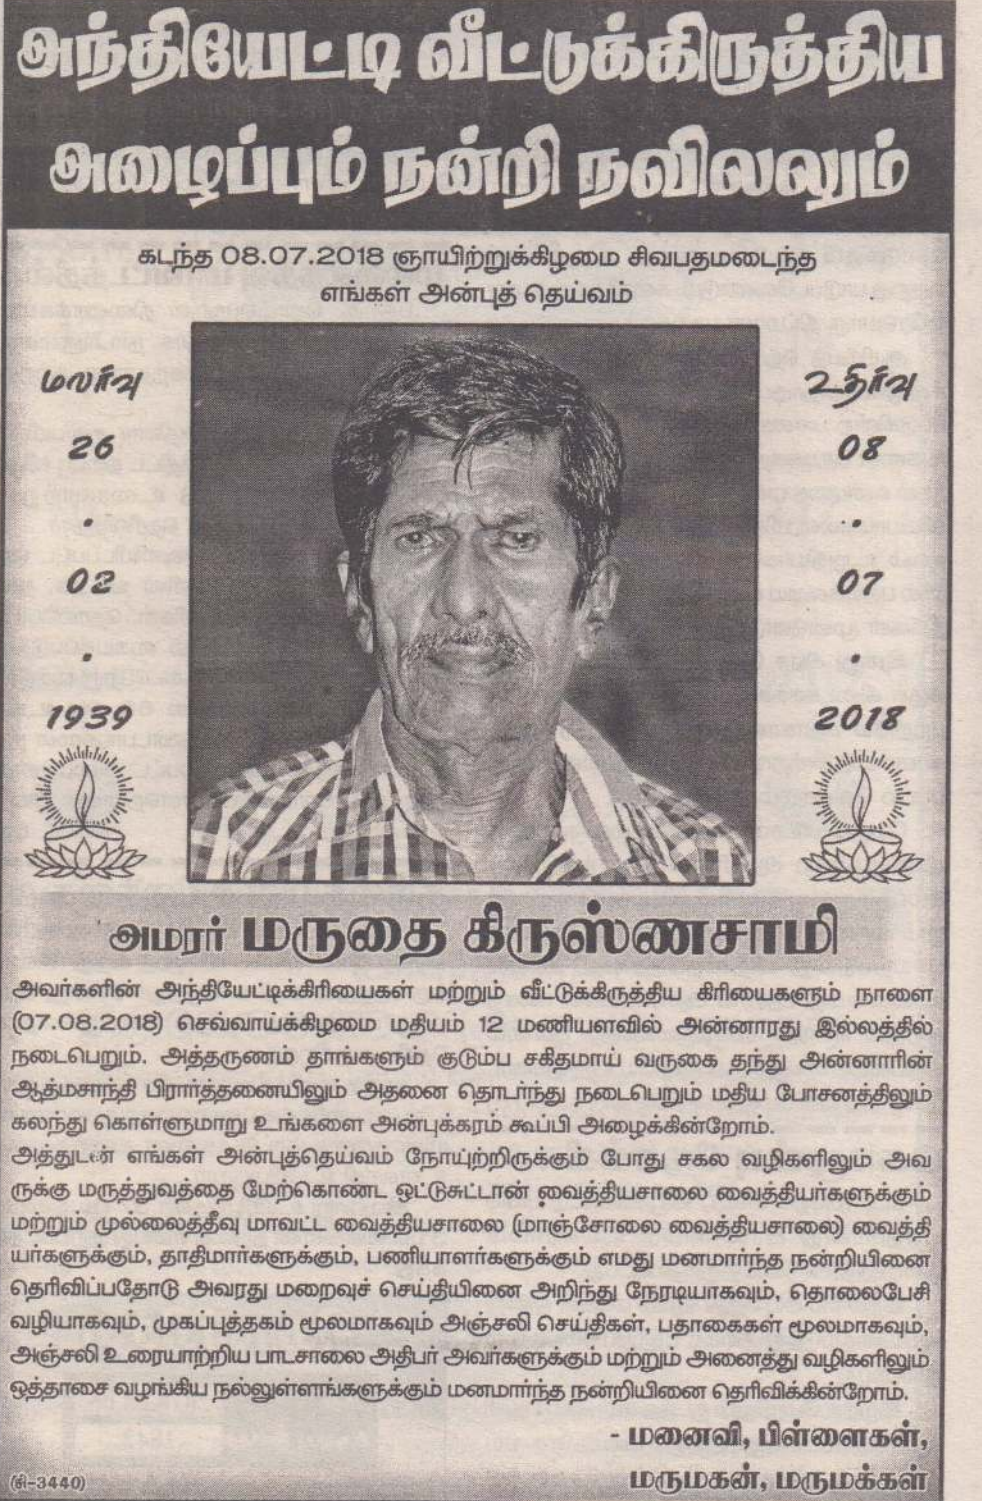 அந்தியேட்டி வீட்டுக்கிருத்திய
அழைப்பும் நன்றி நவிலலும்
கடந்த 08.07.2018 ஞாயிற்றுக்கிழமை சிவபதமடைந்த
எங்கள் அன்புத் தெய்வம்
மலர்வு
26
.
02
.
1939
உதிர்வு
08
.
07
.
2018
அமரர் மருதை கிருஸ்ணசாமி
அவர்களின் அந்தியேட்டிக்கிரியைகள் மற்றும் வீட்டுக்கிருத்திய கிரியைகளும் நாளை
(07.08.2018) செவ்வாய்க்கிழமை மதியம் 12 மணியளவில் அன்னாரது இல்லத்தில்
நடைபெறும். அத்தருணம் தாங்களும் குடும்ப சகிதமாய் வருகை தந்து அன்னாரின்
ஆத்மசாந்தி பிரார்த்தனையிலும் அதனை தொடர்ந்து நடைபெறும் மதிய போசனத்திலும்
கலந்து கொள்ளுமாறு உங்களை அன்புக்கரம் கூப்பி அழைக்கின்றோம்.
அத்துடன் எங்கள் அன்புத்தெய்வம் நோயுற்றிருக்கும் போது சகல வழிகளிலும் அவ
ருக்கு மருத்துவத்தை மேற்கொண்ட ஒட்டுசுட்டான் வைத்தியசாலை வைத்தியர்களுக்கும்
மற்றும் முல்லைத்தீவு மாவட்ட வைத்தியசாலை (மாஞ்சோலை வைத்தியசாலை) வைத்தி
யர்களுக்கும், தாதிமார்களுக்கும், பணியாளர்களுக்கும் எமது மனமார்ந்த நன்றியினை
தெரிவிப்பதோடு அவரது மறைவுச் செய்தியினை அறிந்து நேரடியாகவும், தொலைபேசி
வழியாகவும், முகப்புத்தகம் மூலமாகவும் அஞ்சலி செய்திகள், பதாகைகள் மூலமாகவும்,
அஞ்சலி உரையாற்றிய பாடசாலை அதிபர் அவர்களுக்கும் மற்றும் அனைத்து வழிகளிலும்
ஒத்தாசை வழங்கிய நல்லுள்ளங்களுக்கும் மனமார்ந்த நன்றியினை தெரிவிக்கின்றோம்.
- மனைவி, பிள்ளைகள்,
மருமகன், மருமக்கள்
(சி-3440)